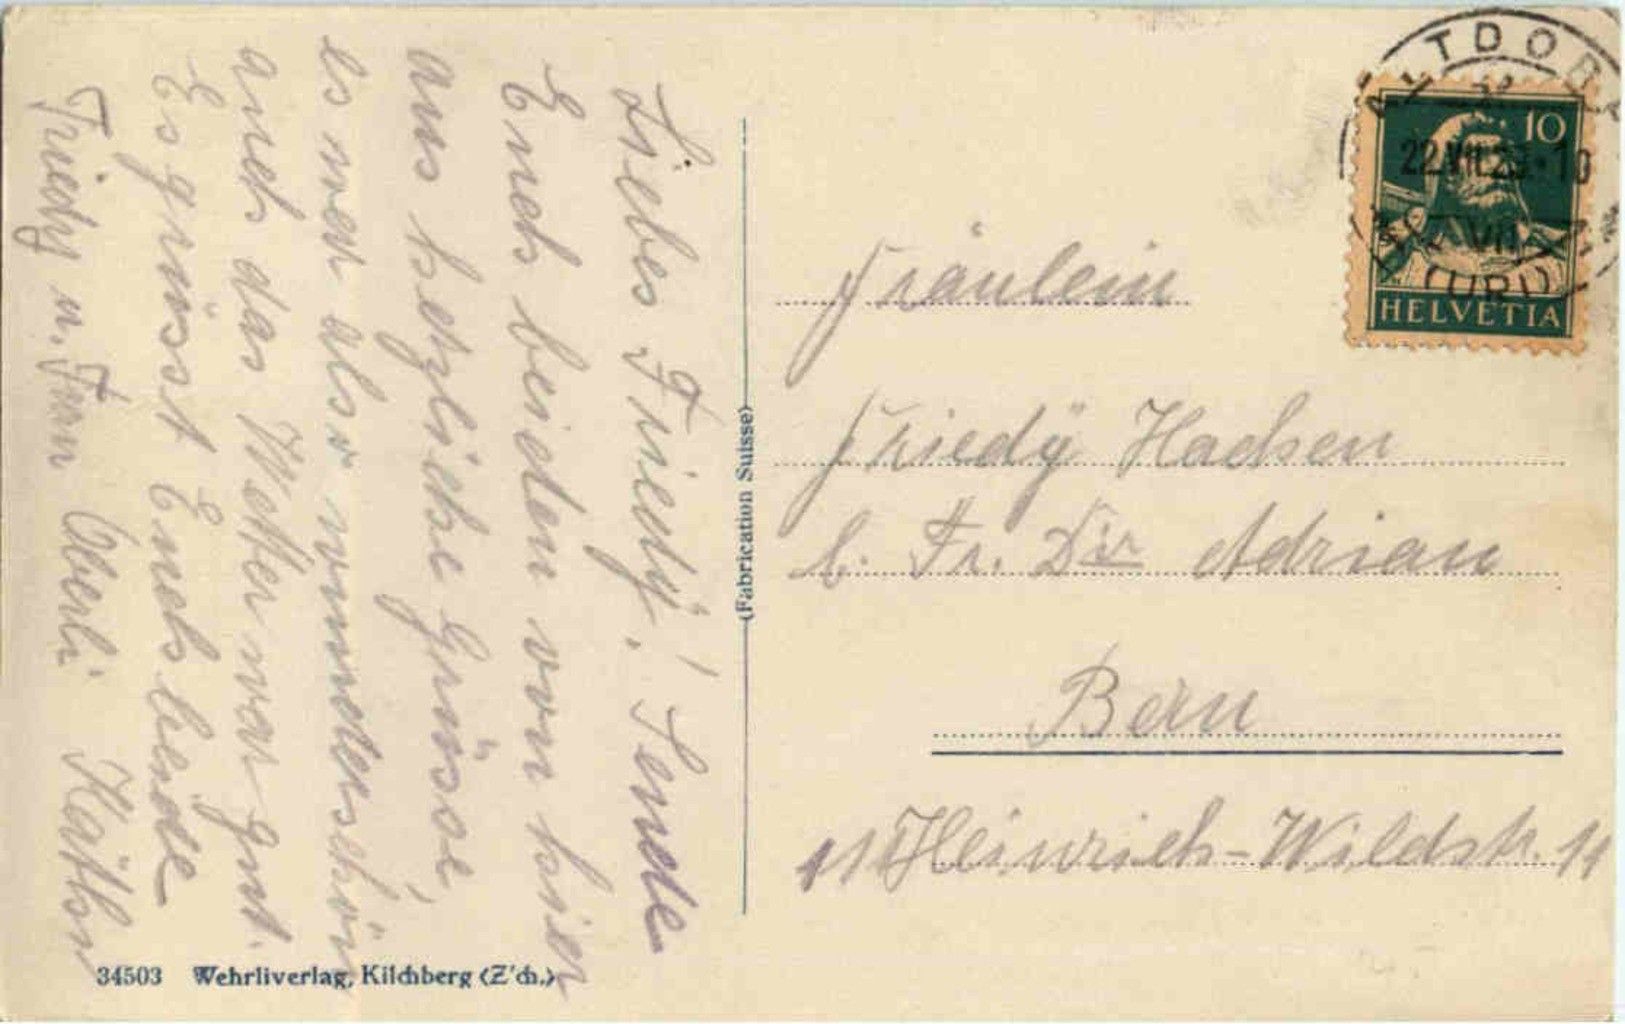 Liebes Friedy! Sende
Euch beiden von hier
aus herzliche Grüsse,
es war also wunderschön
auch das Wetter war gut.
Es grüsst Euch beide
Friedy u. Frau Oberli
(Fabrication Suisse)
34503 Wehrliverlag, Kilchberg (Z'ch.)
ALTDORF
22.VII.2 -10
(URI)
10
HELVETIA
Fräulein
Friedy Hachen
b. Fr. Dir Adrian
Bern
11 Heinrich-Wildstr. 11